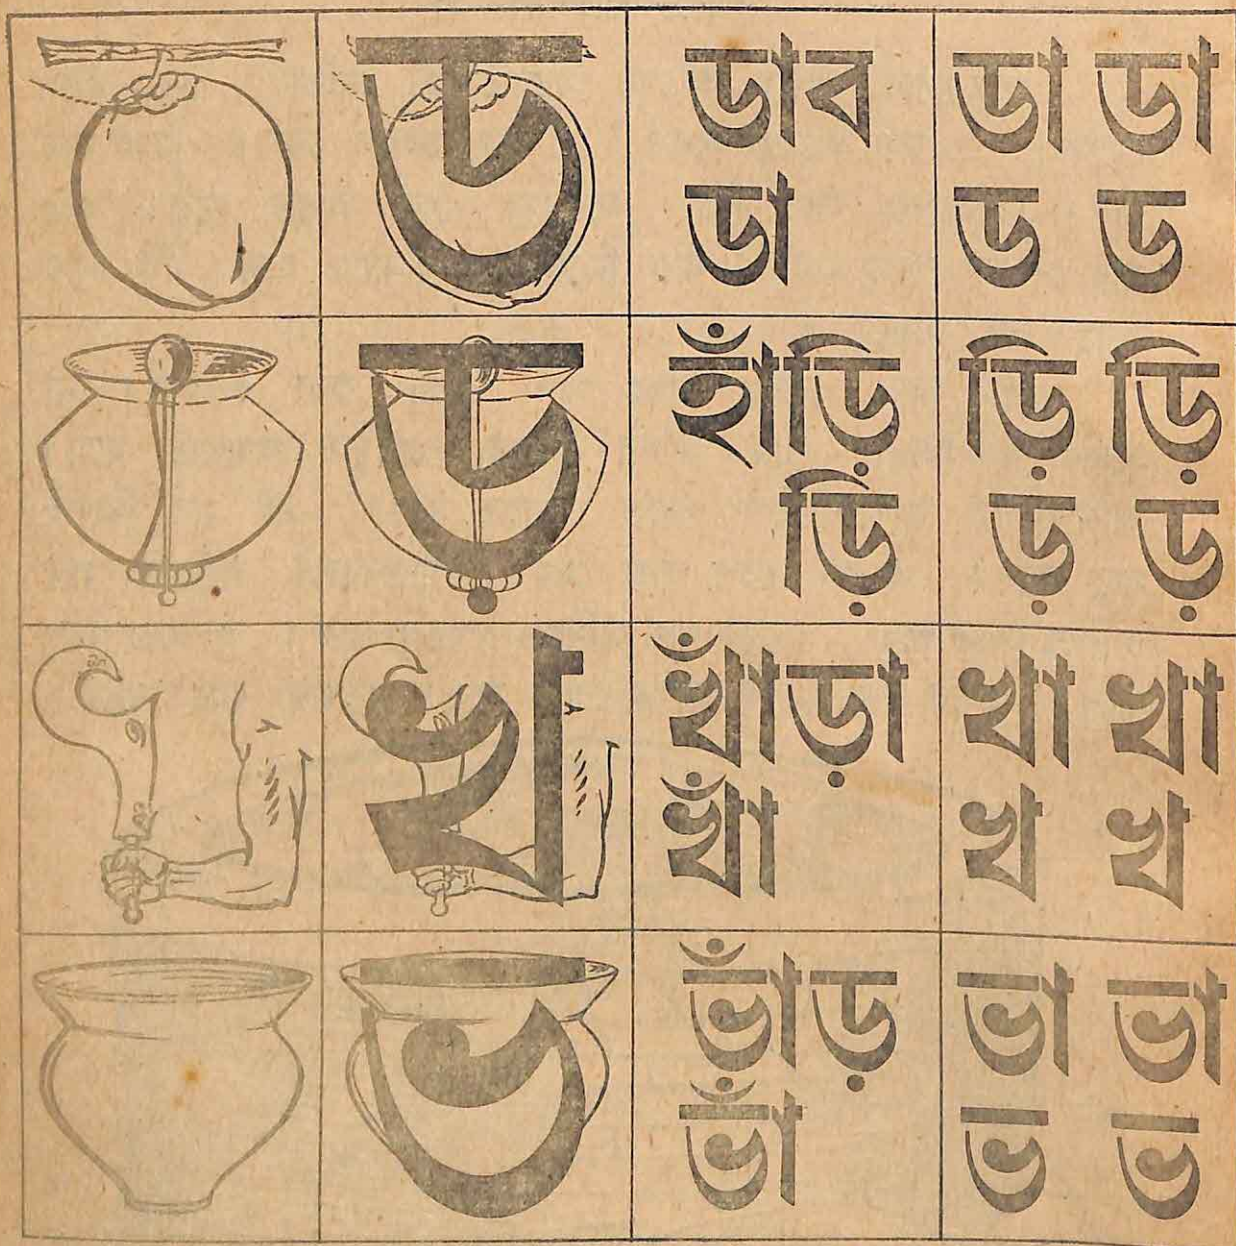 ড
ডাব
ডা
ডা ডা
ড ড
ড
হাঁড়ি
ড়ি
ড়ি ড়ি
ড় ড়
খ
খাঁড়া
খাঁ
খা খা
খ খ
ভ
ভাঁড়
ভাঁ
ভা ভা
ভ ভ